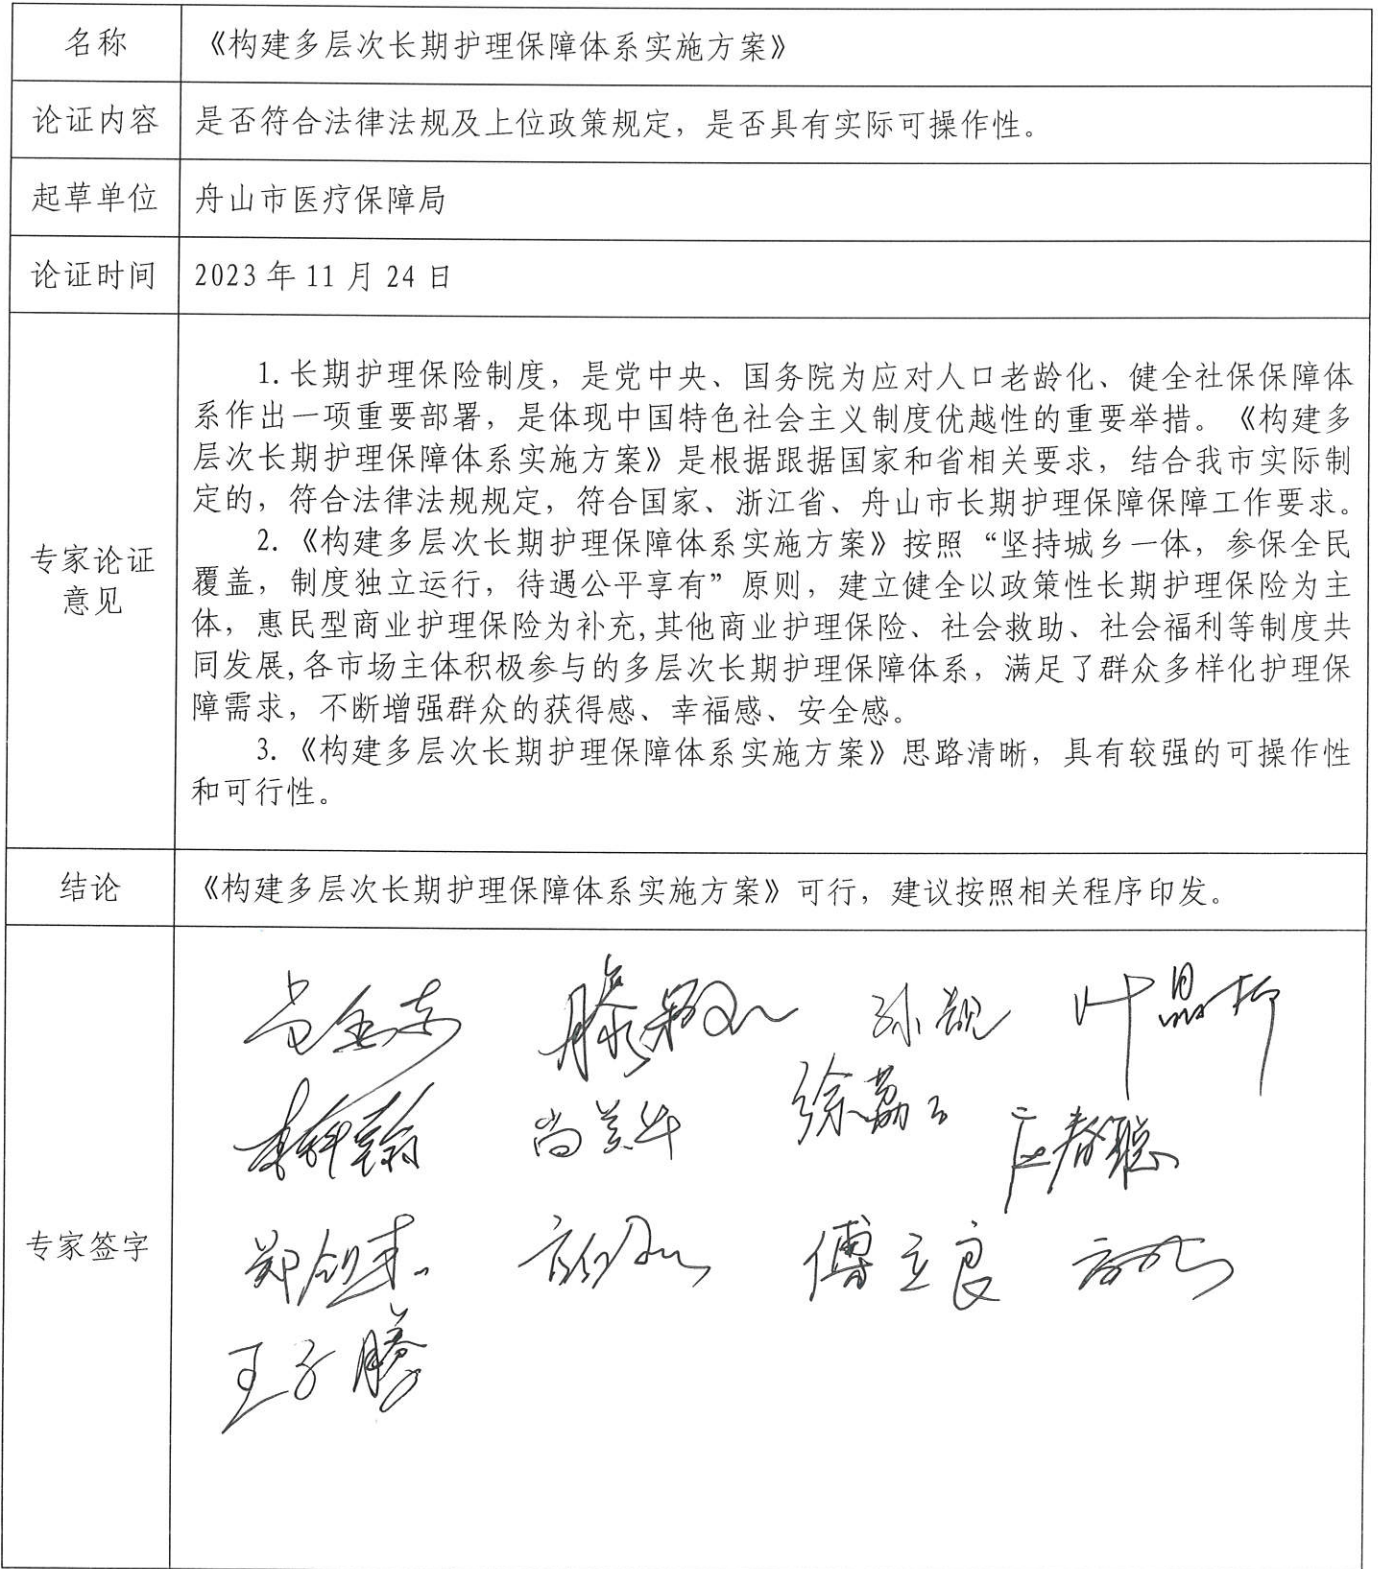 名称 《构建多层次长期护理保障体系实施方案》
论证内容 是否符合法律法规及上位政策规定，是否具有实际可操作性。
起草单位 舟山市医疗保障局
论证时间 2023年11月24日
专家论证
意见
1.长期护理保险制度，是党中央、国务院为应对人口老龄化、健全社保保障体
系作出一项重要部署，是体现中国特色社会主义制度优越性的重要举措。《构建多
层次长期护理保障体系实施方案》是根据跟据国家和省相关要求，结合我市实际制
定的，符合法律法规规定，符合国家、浙江省、舟山市长期护理保障保障工作要求。
2.《构建多层次长期护理保障体系实施方案》按照“坚持城乡一体，参保全民
覆盖，制度独立运行，待遇公平享有”原则，建立健全以政策性长期护理保险为主
体，惠民型商业护理保险为补充,其他商业护理保险、社会救助、社会福利等制度共
同发展,各市场主体积极参与的多层次长期护理保障体系，满足了群众多样化护理保
障需求，不断增强群众的获得感、幸福感、安全感。
3.《构建多层次长期护理保障体系实施方案》思路清晰，具有较强的可操作性
和可行性。
结论 《构建多层次长期护理保障体系实施方案》可行，建议按照相关程序印发。
专家签字
孙靓
尚美华
傅立良
王子腾